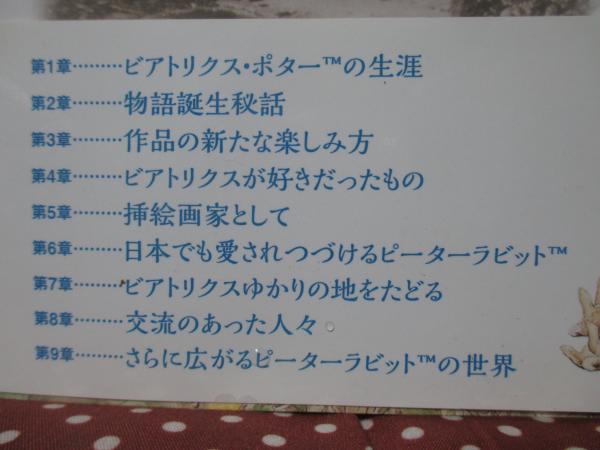 第1章………ビアトリクス・ポター™の生涯
第2章………物語誕生秘話
第3章………作品の新たな楽しみ方
第4章………ビアトリクスが好きだったもの
第5章………挿絵画家として
第6章………日本でも愛されつづけるピーターラビット™
第7章………ビアトリクスゆかりの地をたどる
第8章………交流のあった人々
第9章………さらに広がるピーターラビット™の世界